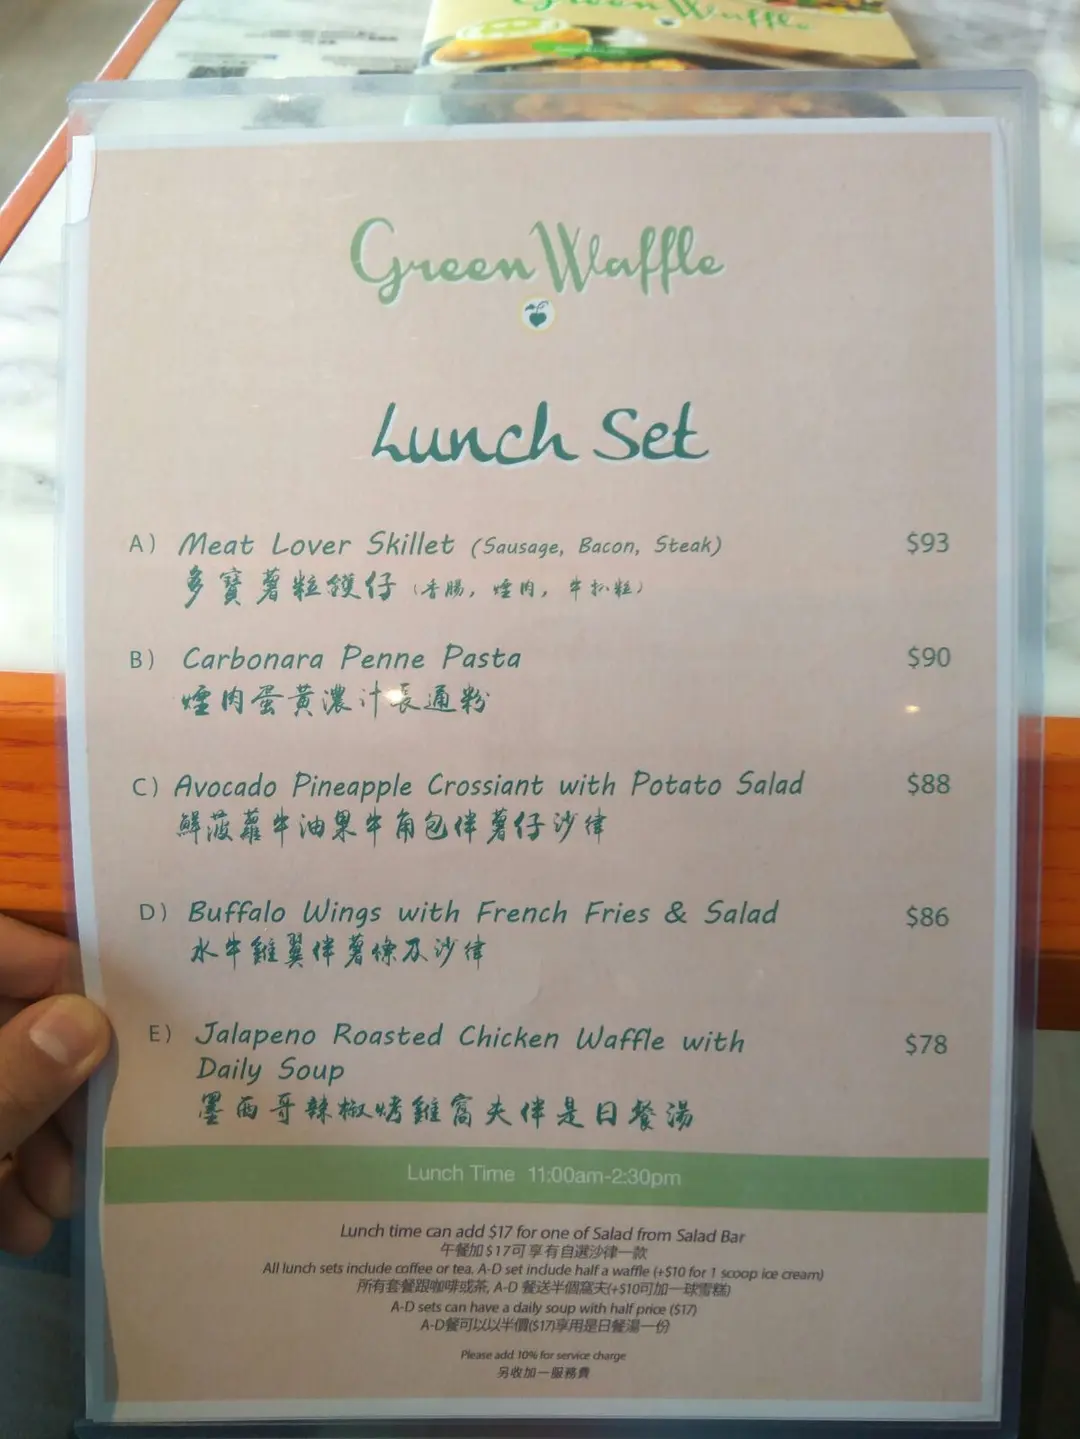 Green Waffle
Green Waffle
Lunch Set
A) Meat Lover Skillet (Sausage, Bacon, Steak) $93
多寶薯粒鑊仔 (香腸, 煙肉, 牛扒粒)
B) Carbonara Penne Pasta $90
煙肉蛋黃濃汁長通粉
C) Avocado Pineapple Crossiant with Potato Salad $88
鮮菠蘿牛油果牛角包伴薯仔沙律
D) Buffalo Wings with French Fries & Salad $86
水牛雞翼伴薯條及沙律
E) Jalapeno Roasted Chicken Waffle with $78
Daily Soup
墨西哥辣椒烤雞窩夫伴是日餐湯
Lunch Time 11:00am-2:30pm
Lunch time can add $17 for one of Salad from Salad Bar
午餐加$17可享有自選沙律一款
All lunch sets include coffee or tea. A-D set include half a waffle (+$10 for 1 scoop ice cream)
所有套餐跟咖啡或茶, A-D 餐送半個窩夫(+$10可加一球雪糕)
A-D sets can have a daily soup with half price ($17)
A-D餐可以以半價($17)享用是日餐湯一份
Please add 10% for service charge
另收加一服務費